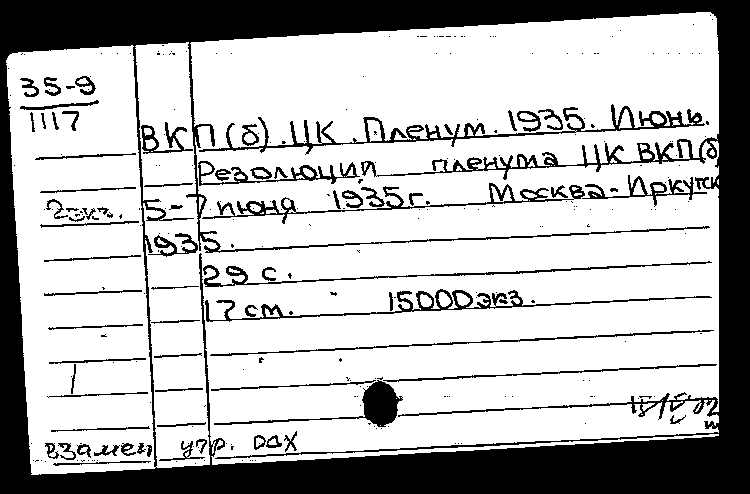 35-9
1117
ВКП(б). ЦК. Пленум. 1935. Июнь.
Резолюции пленума ЦК ВКП(б)
2 экз. 5-7 июня 1935 г. Москва-Иркутск
1935.
29 с.
17 см. 15000 экз.
взамен утр.